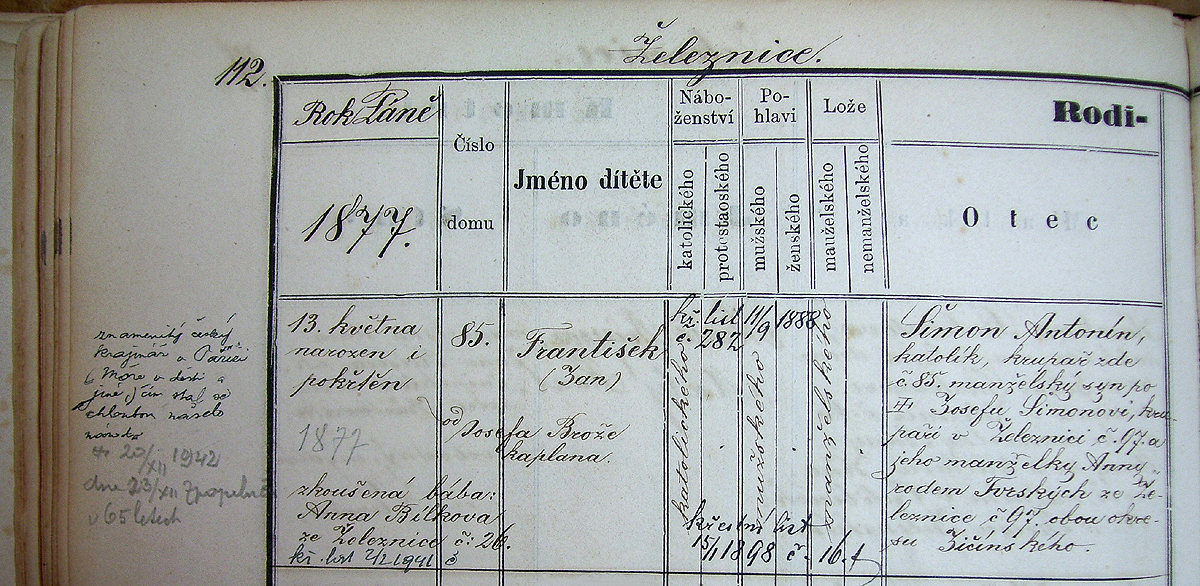 Železnice.
112.
Rok Páně
1877.
Číslo
domu
Jméno dítěte
Nábo-
ženství
katolického
protestaoského
Po-
hlavi
mužského
ženského
Lože
mauželského
nemanželského
Rodi-
Otec
13. května
narozen i
pokřtěn
1877
zkoušená bába:
Anna Bílkova
ze Železnice č: 26.
kř. list 2/2 1941 č
85.
František
(Jan)
od Josefa Brože
kaplana.
kř. list 11/9 1888
č. 282
katolického
mužského
manželského
křestní list
15/1 1898 č. 16.
Šimon Antonín,
katolík, krupař zde
č. 85. manželský syn po
Josefu Šimonovi, kru-
paři v Železnici č. 97. a
jeho manželky Anny
rodem Turských ze Že-
leznice č 97. obou okre-
su Jičínského.
znamenitý český
krajinář v Paříži
Moře v dešti a
jiné
chloubou našeho
národa
20/XII 1942
dne 23/XII zpopelněn
v 65 letech